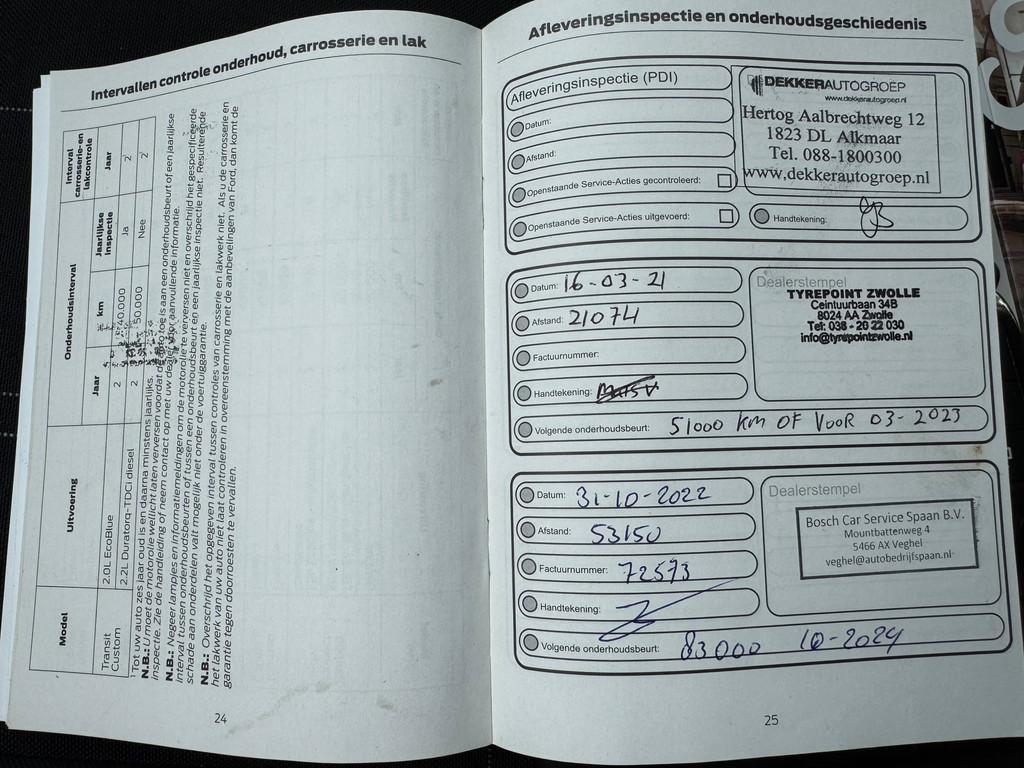 Intervallen controle onderhoud, carrosserie en lak
Model
Uitvoering
Onderhoudsinterval
Interval carrosserie- en lakcontrole
Jaar
km
Jaarlijkse inspectie
Jaar
Transit Custom
2.0L EcoBlue
2
40.000
Ja
2
2.2L Duratorq-TDCi diesel
2
50.000
Nee
2
¹Tot uw auto zes jaar oud is en daarna minstens jaarlijks.
N.B.: U moet de motorolie wellicht laten verversen voordat de auto toe is aan een onderhoudsbeurt of een jaarlijkse
inspectie. Zie de handleiding of neem contact op met uw dealer voor aanvullende informatie.
N.B.: Negeer lampjes en informatiemeldingen om de motorolie te verversen niet en overschrijd het gespecificeerde
interval tussen onderhoudsbeurten of tussen een onderhoudsbeurt en een jaarlijkse inspectie niet. Resulterende
schade aan onderdelen valt mogelijk niet onder de voertuiggarantie.
N.B.: Overschrijd het opgegeven interval tussen controles van carrosserie en lakwerk niet. Als u de carrosserie en
het lakwerk van uw auto niet laat controleren in overeenstemming met de aanbevelingen van Ford, dan komt de
garantie tegen doorroesten te vervallen.
24
Afleveringsinspectie en onderhoudsgeschiedenis
Afleveringsinspectie (PDI)
Datum:
Afstand:
Openstaande Service-Acties gecontroleerd:
Openstaande Service-Acties uitgevoerd:
DEKKERAUTOGROEP
www.dekkerautogroep.nl
Hertog Aalbrechtweg 12
1823 DL Alkmaar
Tel. 088-1800300
www.dekkerautogroep.nl
Handtekening:
Datum: 16-03-21
Afstand: 21074
Factuurnummer:
Handtekening:
Volgende onderhoudsbeurt: 51000 km OF VOOR 03-2023
Dealerstempel
TYREPOINT ZWOLLE
Ceintuurbaan 34B
8024 AA Zwolle
Tel: 038 - 20 22 030
info@tyrepointzwolle.nl
Datum: 31-10-2022
Afstand: 53150
Factuurnummer: 72573
Handtekening:
Volgende onderhoudsbeurt: 83000 10-2024
Dealerstempel
Bosch Car Service Spaan B.V.
Mountbattenweg 4
5466 AX Veghel
veghel@autobedrijfspaan.nl
25